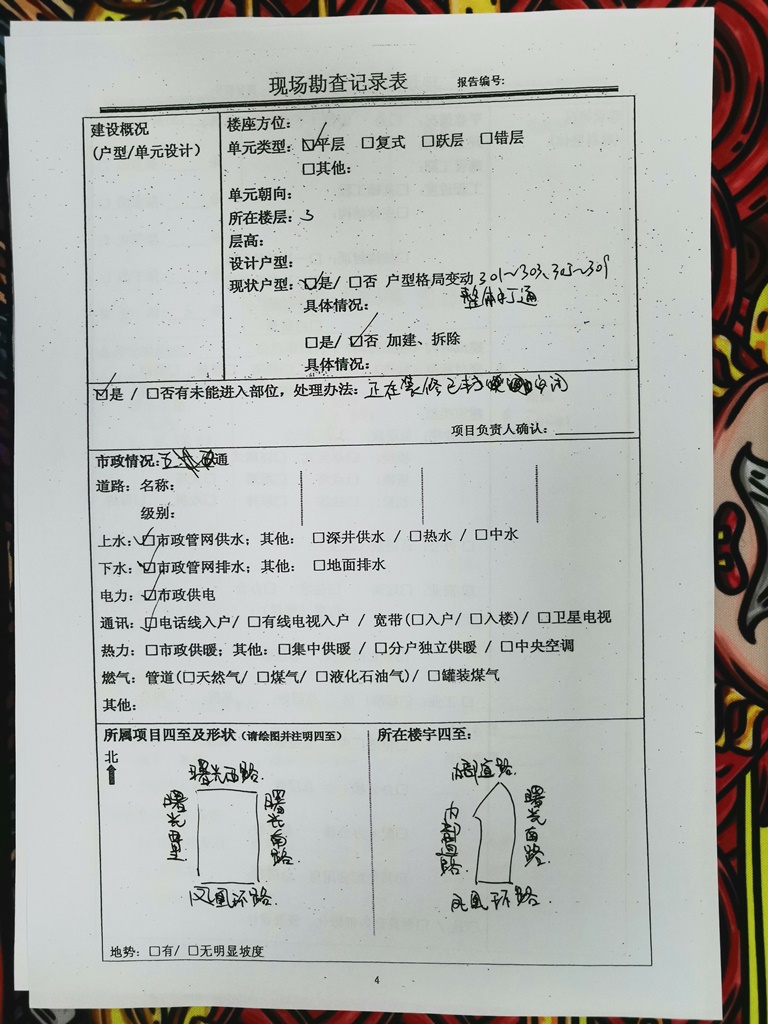 现场勘查记录表 报告编号:
建设概况
(户型/单元设计)
楼座方位:
单元类型: ☑平层 □复式 □跃层 □错层
□其他:
单元朝向:
所在楼层: 3
层高:
设计户型:
现状户型: ☑是/ □否 户型格局变动 301~303、305~309
整体打通
具体情况:
□是/ ☑否 加建、拆除
具体情况:
☑是 / □否有未能进入部位, 处理办法: 正在装修已
项目负责人确认:
市政情况: 五通
道路: 名称:
级别:
上水: ☑市政管网供水; 其他: □深井供水 / □热水 / □中水
下水: ☑市政管网排水; 其他: □地面排水
电力: ☑市政供电
通讯: ☑电话线入户/ □有线电视入户 / 宽带(□入户/ □入楼)/ □卫星电视
热力: □市政供暖; 其他: □集中供暖 / □分户独立供暖 / □中央空调
燃气: 管道(□天然气/ □煤气/ □液化石油气)/ □罐装煤气
其他:
所属项目四至及形状 (请绘图并注明四至)
北
曙光西路
曙光
曙光南路
凤凰环路
所在楼宇四至:
道路
内部道路
曙光南路
凤凰环路
地势: □有/ □无明显坡度
4